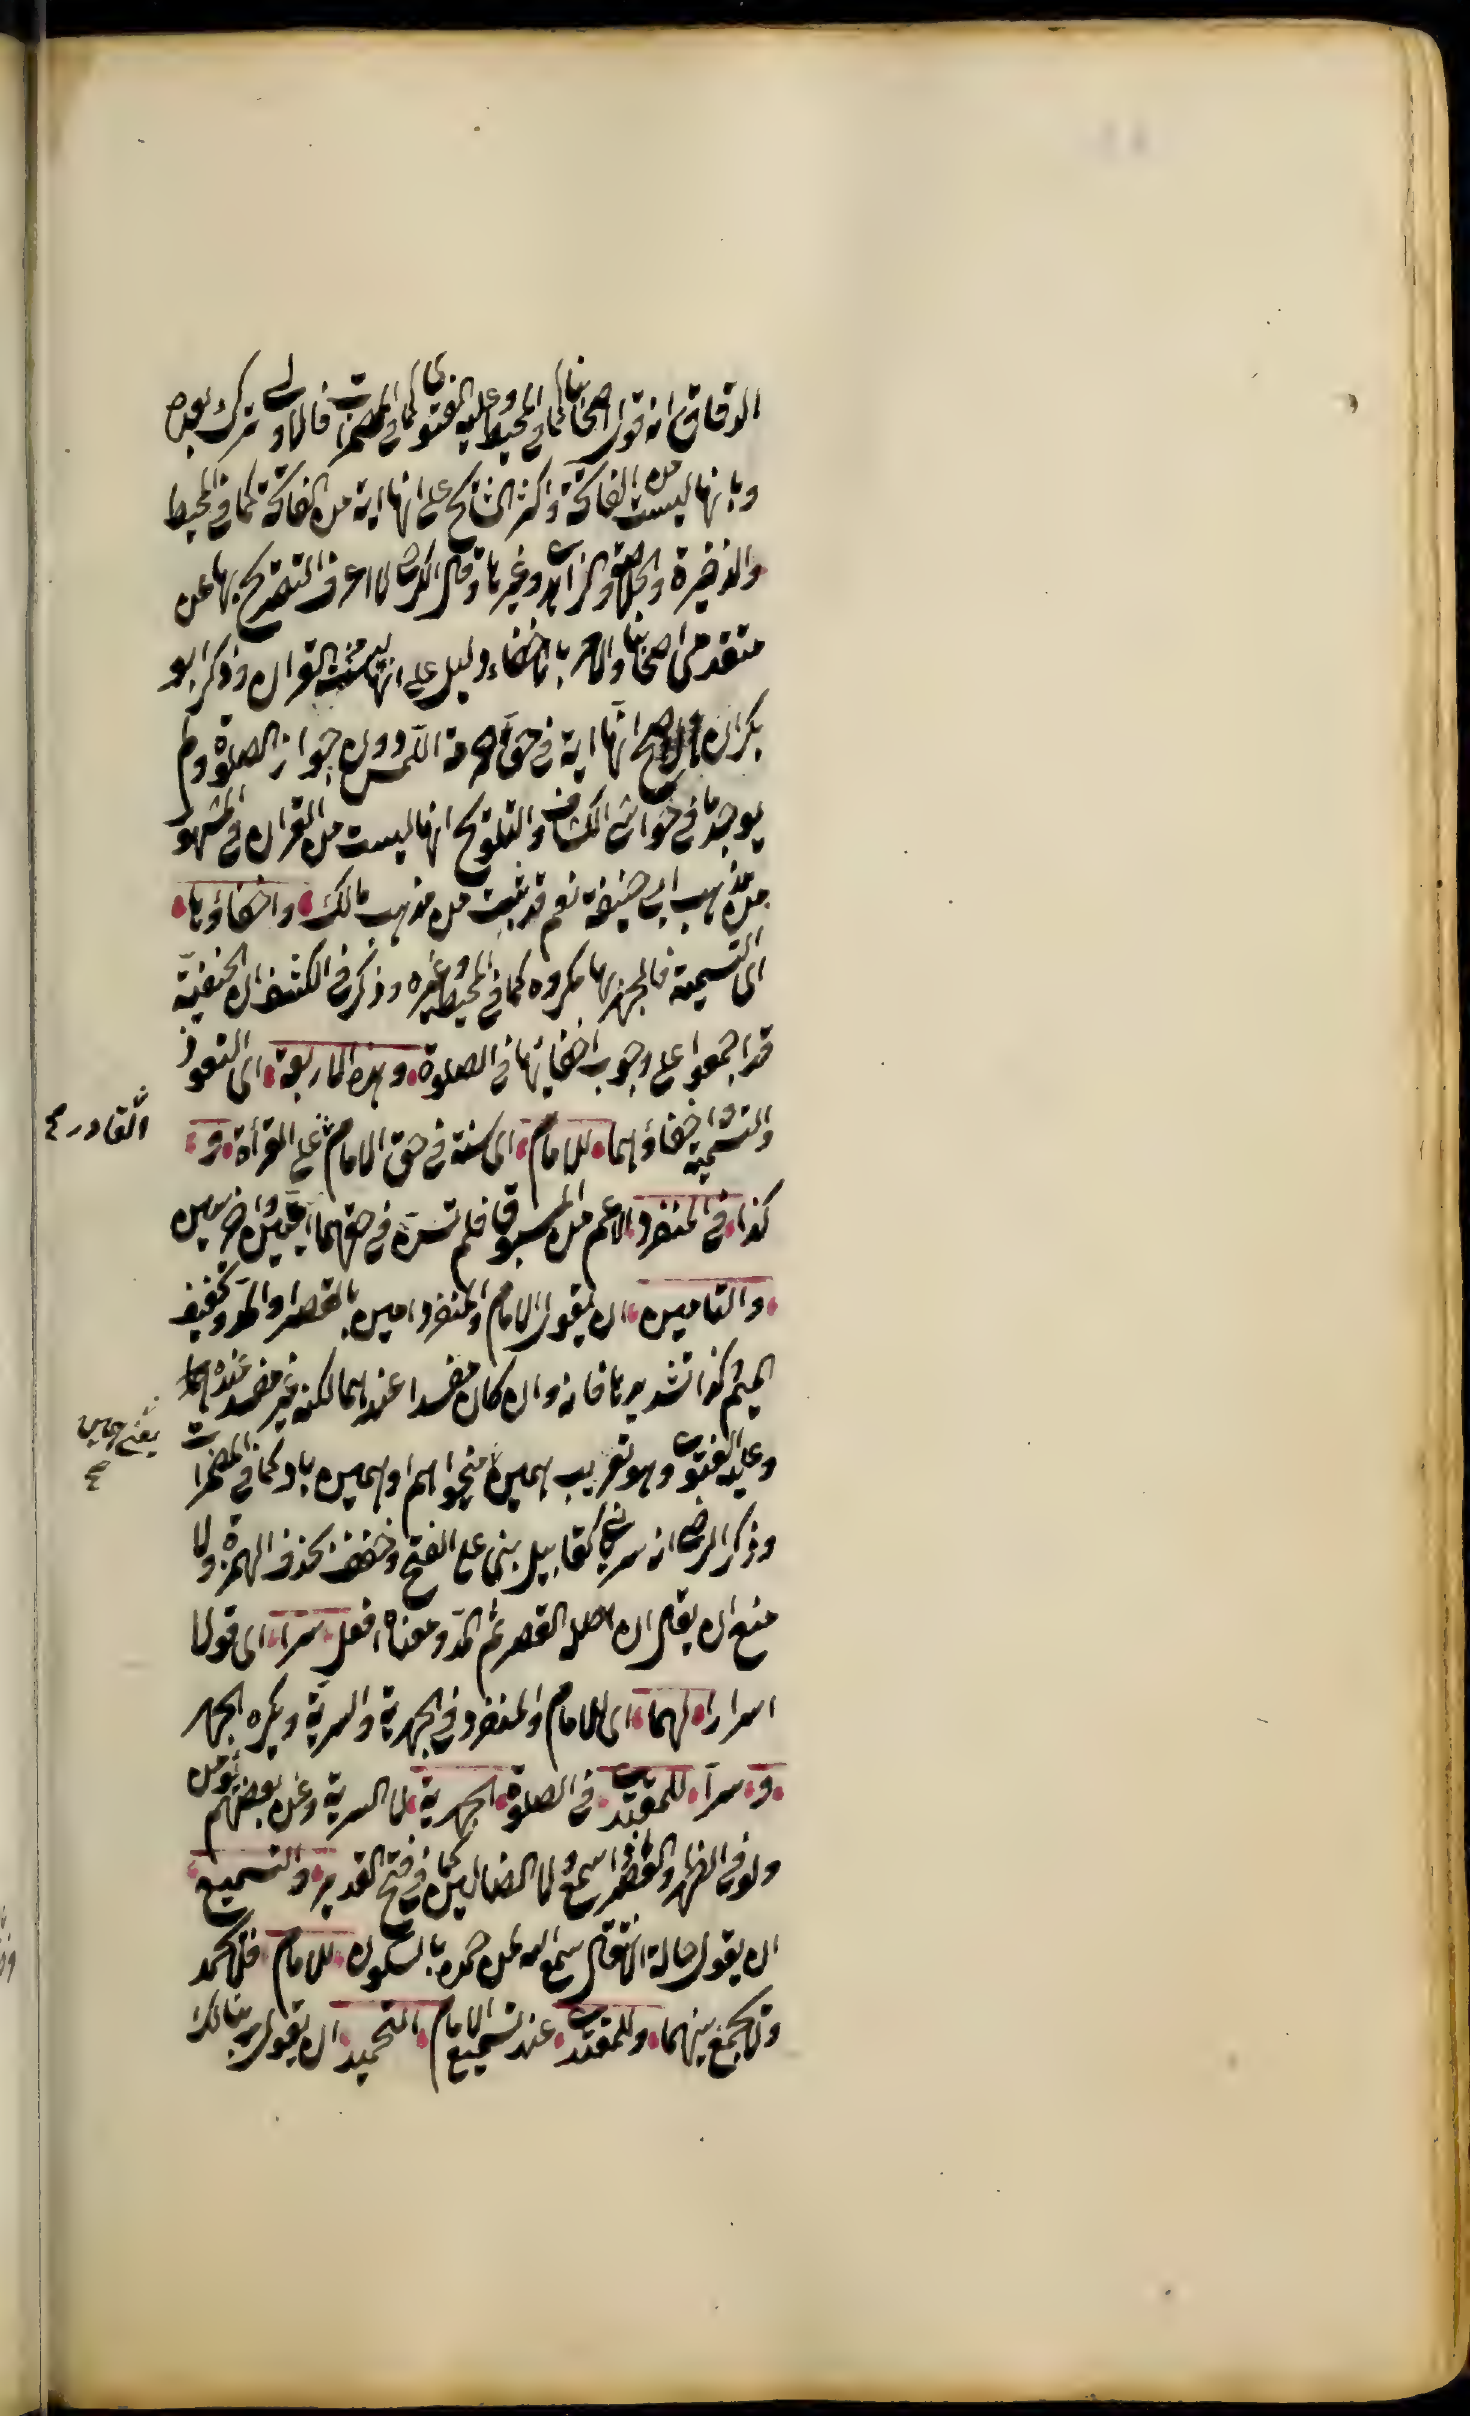 الدقاق انه قول اصحابنا كما في المحيط وعليه الفتوى كما في المضمرات فالاولى ترك بعده
وبانها ليست من الفاتحة واكثر المشايخ على انها اية من الفاتحة كما في المحيط
والذخيرة والخلاصة والزاهدى وغيرها وقال الكرخي لا اعرف التصريح بها عن
متقدمى اصحابنا والامر باخفاء دليل على انها ليست من القران وذكر ابو
بكر ان الاصح انها اية في حق حرمة المس دون جواز الصلوة ولم
يوجد ما في حواشى الكشاف والتلويح انها ليست من القران في المشهور
من مذهب ابي حنيفة نعم قد ثبت من مذهب مالك واخفاؤها
اى التسمية فالجهر بها مكروه كما في المحيط وغيره وذكر في الكشف ان الحنفية
قد اجمعوا على وجوب اخفائها في الصلوة وهذه الاربعة اى التعوذ
والتسمية واخفاؤهما للامام اى سنة في حق الامام القادر على القرأة و
كذا في المنفرد الاعم من المسبوق فلم تسن في حق
والتامين ان يقول الامام والمنفرد امين بالقصر او المد وتخفيف
الميم وكذا تشديدها فانه وان كان مفسدا عندهما لكنه غير مفسد عنده
وعليه الفتوى وهو تعريب همين يعني چنين ميخواهم او همين باد كما في المضمرات
وذكر الرضى انه سريانى كقابيل بنى على الفتح وخفف بحذف الهمزة ولا
منع ان يقال ان اصله القصر ثم المد ومعناه افعل سرا اى قولا
اسرارا لهما اى للامام والمنفرد في الجهرية والسرية ويكره الجهر
و سرا للمقتدى في الصلوة الجهرية لا السرية وعن بعضهم يؤمن
ولو في الظهر والعصر اذا سمع ولا الضالين كما في فتح القدير والتسميع
ان يقول حالة الانتقال سمع الله لمن حمده بالسكون للامام فلا يحمد
ولا يجمع بينهما وللمقتدى عند تسميع الامام التحميد ان يقول ربنا لك